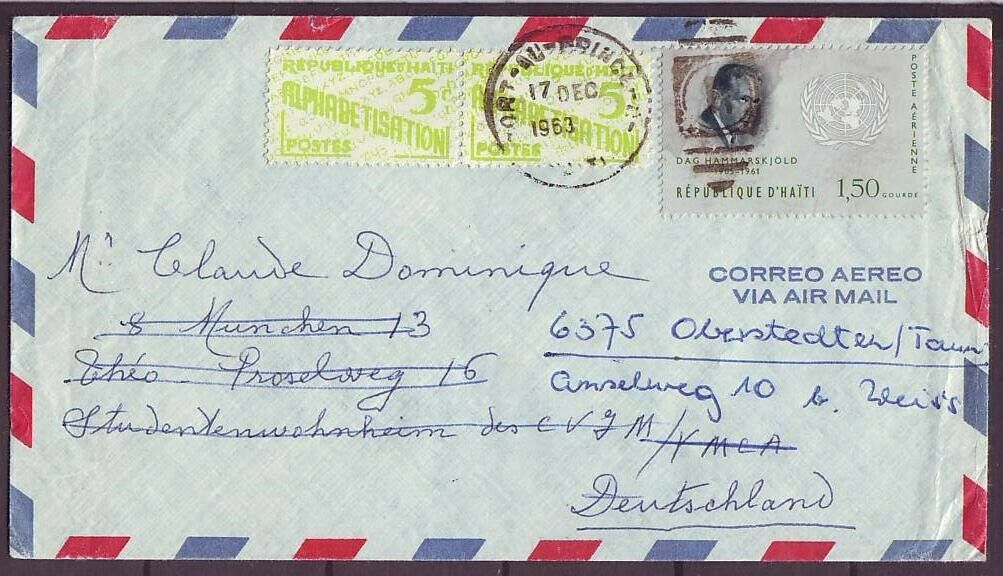 RÉPUBLIQUE D'HAÏTI
5c
ALPHABETISATION
POSTES
RÉPUBLIQUE D'HAÏTI
5c
ALPHABETISATION
POSTES
PORT-AU-PRINCE
17 DEC
1963
HAITI
POSTE AÉRIENNE
DAG HAMMARSKJOLD
1905-1961
RÉPUBLIQUE D'HAÏTI 1,50 GOURDE
Mr Claude Dominique
CORREO AEREO
VIA AIR MAIL
8 München 13
Théo Proselweg 16
Studentenwohnheim des CVJM/YMCA
6375 Oberstedten/Taun
Amselweg 10 b. Weiss
Deutschland